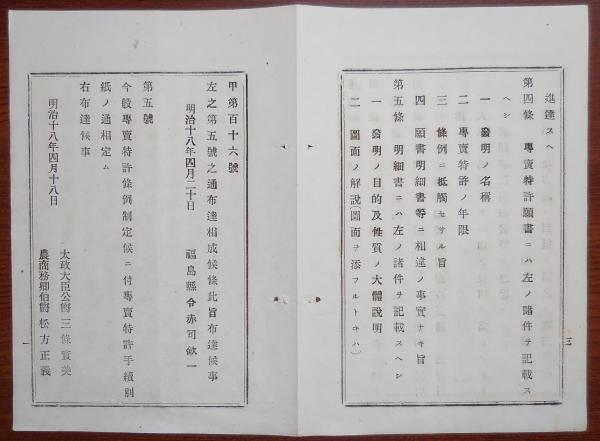 進達スヘシ
第四條 專賣特許願書ニハ左ノ諸件ヲ記載ス
ヘシ
一 發明ノ名稱
二 專賣特許ノ年限
三 條例ニ抵觸セサル旨
四 願書明細書等ニ相違ノ事實ナキ旨
第五條 明細書ニハ左ノ諸件ヲ記載スヘシ
一 發明ノ目的及性質ノ大體說明
二 圖面ノ解說(圖面ヲ添フルトキハ)
三
甲第百十六號
左之第五號之通布達相成候條此旨布達候事
明治十八年四月二十日
福島縣令赤司欽一
第五號
今般專賣特許條例制定候ニ付專賣特許手續別
紙ノ通相定ム
右布達候事
明治十八年四月十八日
太政大臣公爵三條實美
農商務卿伯爵松方正義
一